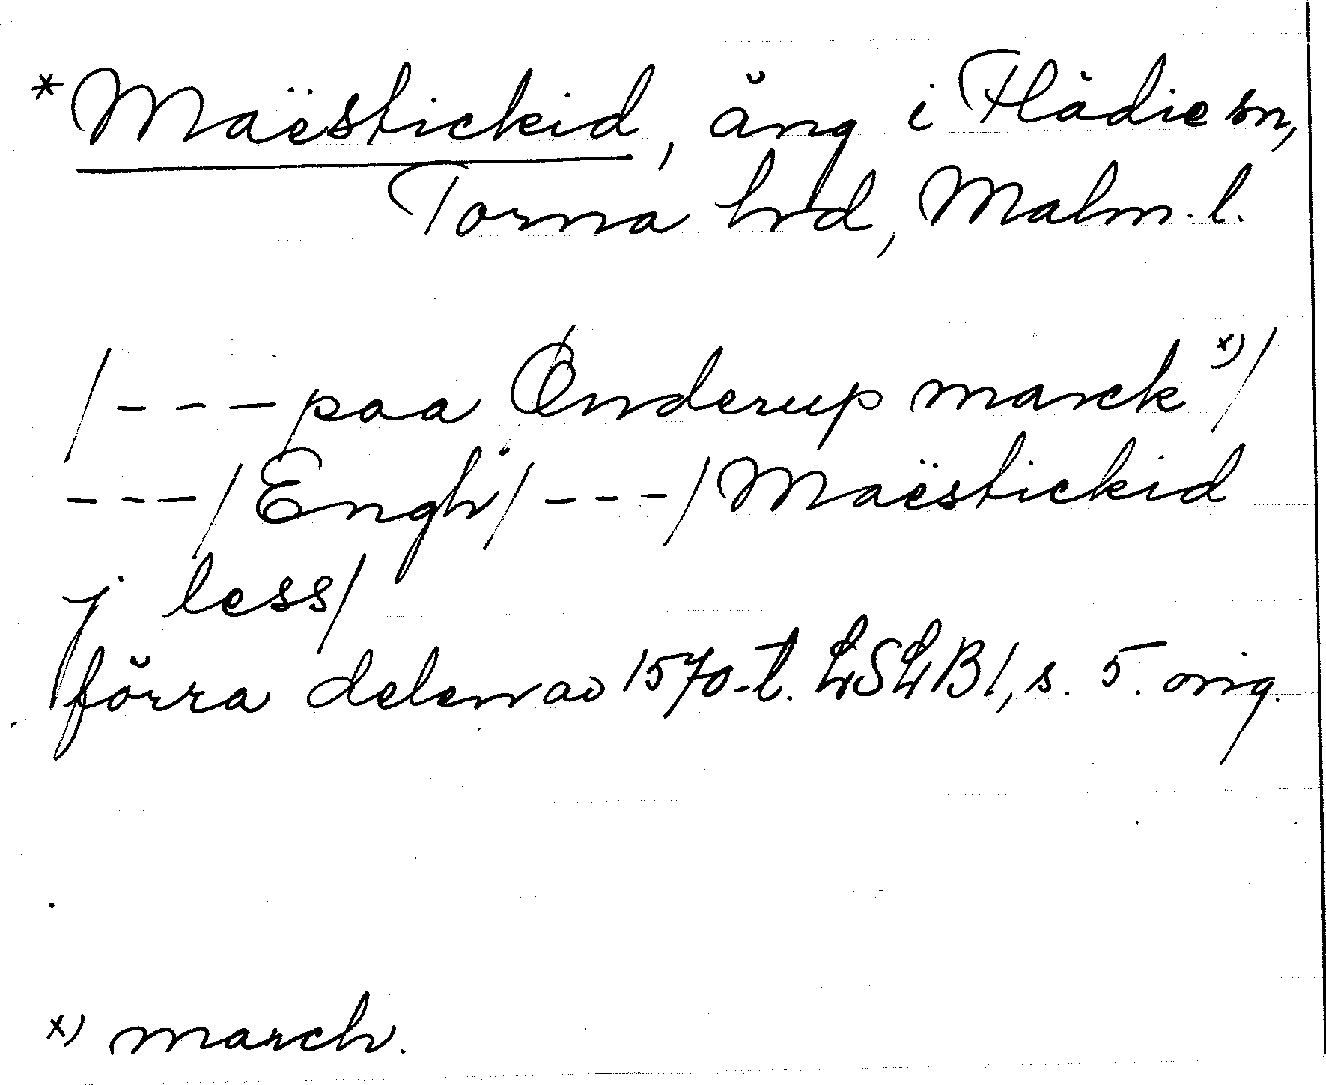 *Maëstickid, äng i Flädie sn,
Torna hrd, Malm. l.
/---paa Ønderup marck x)/
---/Engh/---/Maëstickid
j less/
förra delen av 1570-t. LSLB1, s. 5. orig.
x) march.